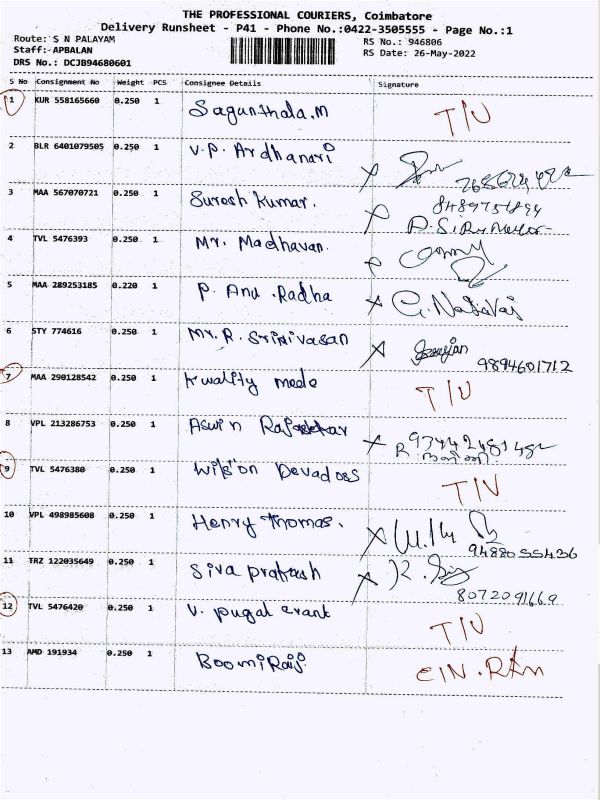 THE PROFESSIONAL COURIERS, Coimbatore
Delivery Runsheet - P41 - Phone No.:0422-3505555 - Page No.:1
Route: S N PALAYAM
Staff: APBALAN
DRS No.: DCJB94680601
RS No.: 946806
RS Date: 26-May-2022
S No Consignment No Weight PCS Consignee Details Signature
1 KUR 558165660 0.250 1 Sagunthala.M T/U
2 BLR 6401079505 0.250 1 V.P. Ardhanari
3 MAA 567070721 0.250 1 Suresh Kumar.
4 TVL 5476393 0.250 1 Mr. Madhavan.
5 MAA 289253185 0.220 1 P. Anu .Radha G. Nataraj
6 STY 774616 0.250 1 Mr. R. Srinivasan 9894601712
7 MAA 290128542 0.250 1 Kwality T/U
8 VPL 213286753 0.250 1 Aswin
9 TVL 5476380 0.250 1 Wilson Devadoss T/U
10 VPL 498985608 0.250 1 Henry Thomas. 9488055436
11 TRZ 122035649 0.250 1 Siva prakash 8072091669
12 TVL 5476420 0.250 1 V. pugal T/U
13 AMD 191934 0.250 1 BoomiRaj.